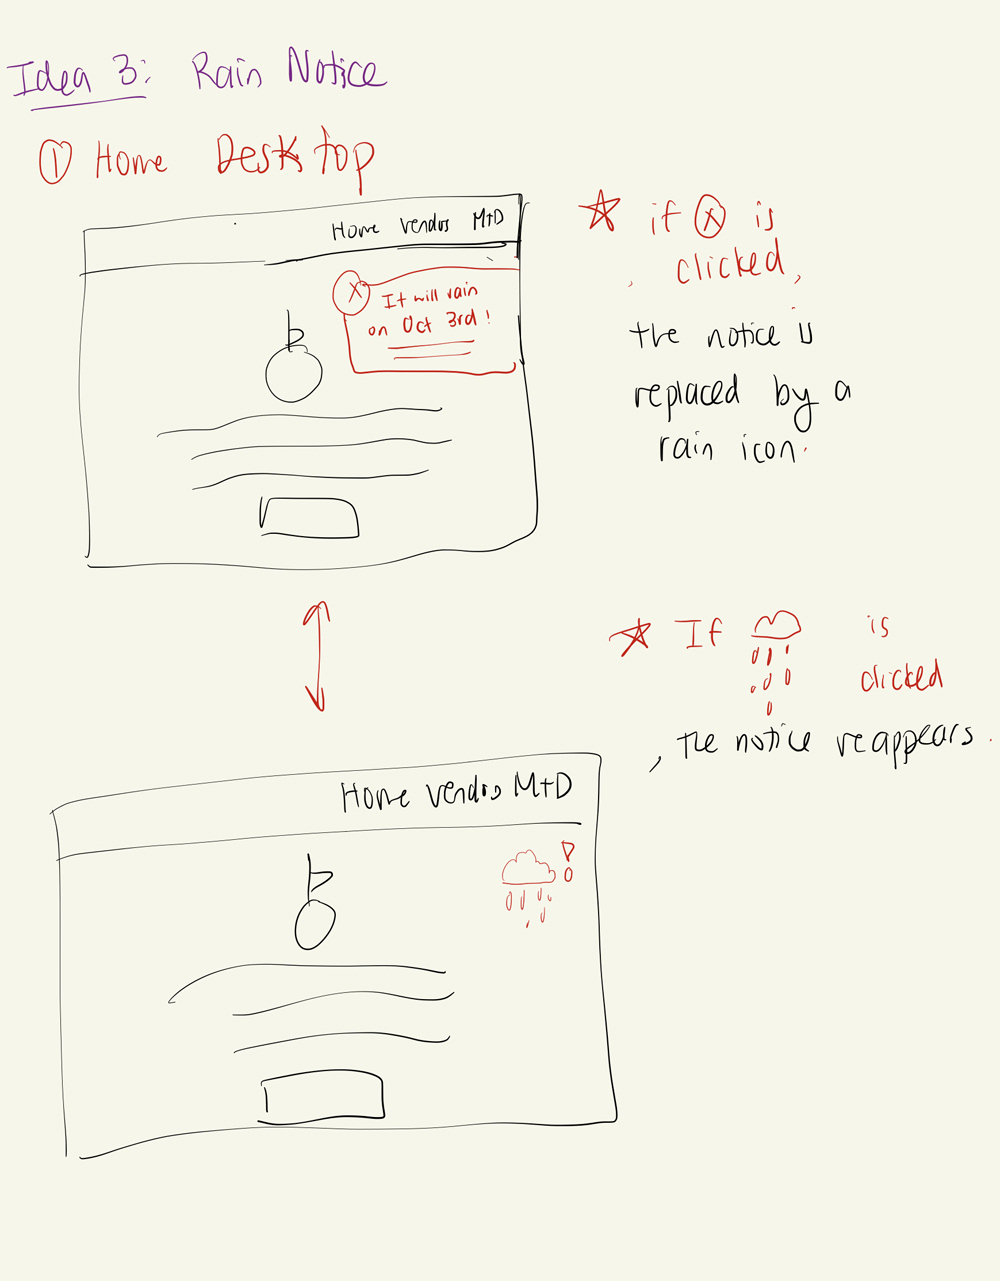 Idea 3: Rain Notice
① Home Desktop
Home Vendors M+D
X It will rain
on Oct 3rd!
☆ if ⓧ is
clicked,
the notice is
replaced by a
rain icon.
☆ If is
clicked
, the notice reappears.
Home Vendors M+D
!